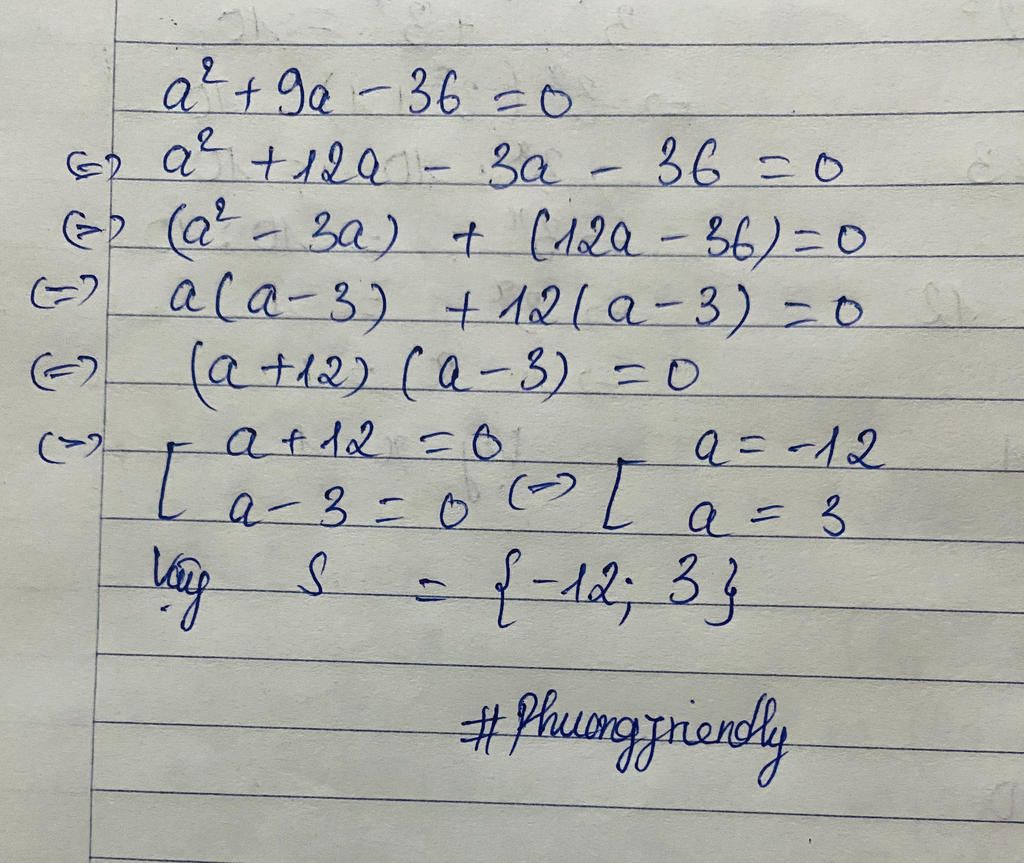 a² + 9a - 36 = 0
(=) a² + 12a - 3a - 36 = 0
(=) (a² - 3a) + (12a - 36) = 0
(=) a(a - 3) + 12(a - 3) = 0
(=) (a + 12)(a - 3) = 0
(=) [ a + 12 = 0 (=) [ a = -12
a - 3 = 0 a = 3
Vậy S = {-12; 3}
#Phuongfriendly